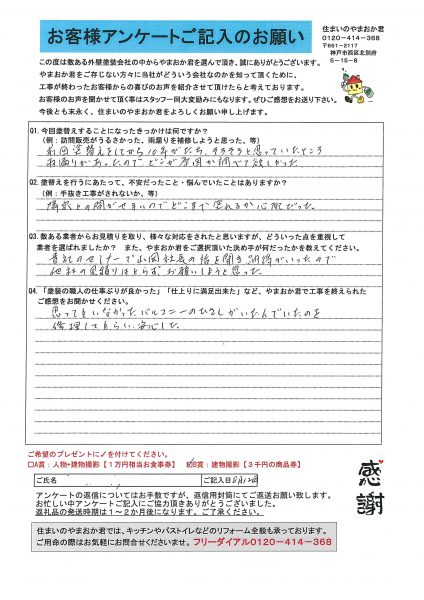 お客様アンケートご記入のお願い
住まいのやまおか君
0120-414-368
〒651-2117
神戸市西区北別府
5-15-8
この度は数ある外壁塗装会社の中からやまおか君を選んで頂き、誠にありがとうございます。
やまおか君をご存じない方々に当社がどういう会社なのかを知って頂くために、
工事が終わったお客様からの喜びのお声を紹介させて頂けたらと考えております。
お客様のお声を聞かせて頂く事はスタッフ一同大変励みにもなります。ぜひご感想をお送り下さい。
今後とも末永く、住まいのやまおか君をよろしくお願い申し上げます。
Q1. 今回塗替えすることになったきっかけは何ですか?
(例:訪問販売がうるさかった、雨漏りを補修しようと思った、等)
前回塗替えをしてから10年がたち、そろそろと思っていたところ
雨漏りがあったので、どこが原因か調べて欲しかった
Q2. 塗替えを行うにあたって、不安だったこと・悩んでいたことはありますか?
(例:手抜き工事がされないか、等)
隣家との間がせまいのでどこまで塗れるか心配だった。
Q3. 数ある業者からお見積りを取り、様々な対応をされたと思いますが、どういった点を重視して
業者を選ばれましたか? また、やまおか君をご選択頂いた決め手が何だったかを教えてください。
貴社のセミナーで山岡社長の話を聞き納得がいったので
他社の見積りはとらずお願いしようと思った。
Q4. 「塗装の職人の仕事ぶりが良かった」「仕上りに満足出来た」など、やまおか君で工事を終えられた
ご感想をお聞かせください。
思ってもいなかったバルコニーのひさしがいたんでいたのを
修理してもらい、安心した。
ご希望のプレゼントに✓を付けてください。
□A賞:人物+建物撮影【1万円相当お食事券】 ☑B賞:建物撮影【3千円の商品券】
ご氏名
ご記入日 8月12日
アンケートの返信についてはお手数ですが、返信用封筒にてご返送お願い致します。
お忙しい中アンケートご記入にご協力頂きありがとうございました。
返礼品の発送時期は1~2か月後になります。ご了承ください。
感謝
住まいのやまおか君では、キッチンやバストイレなどのリフォーム全般も承っております。
ご用命の際はお気軽にお問合せくださいませ。フリーダイアル0120-414-368